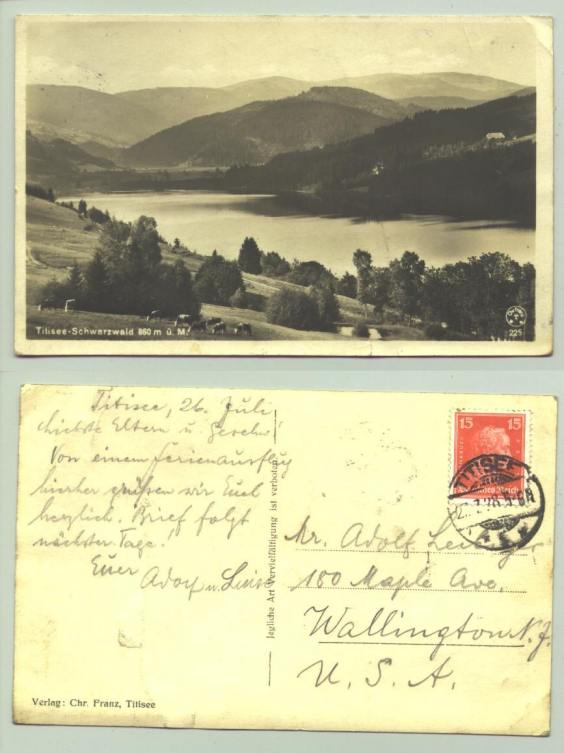 Titisee-Schwarzwald 860 m ü. M.
225
Titisee, 26. Juli
Liebste Eltern u.
Von einem Ferienausflug
hierher grüßen wir Euch
herzlich. Brief folgt
nächster Tage!
Euer
Adolf u. Luise
Verlag: Chr. Franz, Titisee
Jegliche Art Vervielfältigung ist verboten.
15 15
Deutsches Reich
TITISEE
Mr. Adolf
180 Maple Ave.
Wallington N. J.
U. S. A.